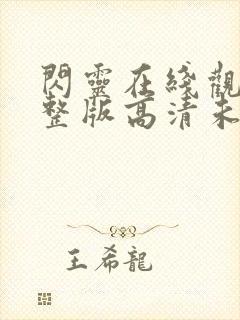 閃靈在綫觀
整版高清未
王希龍